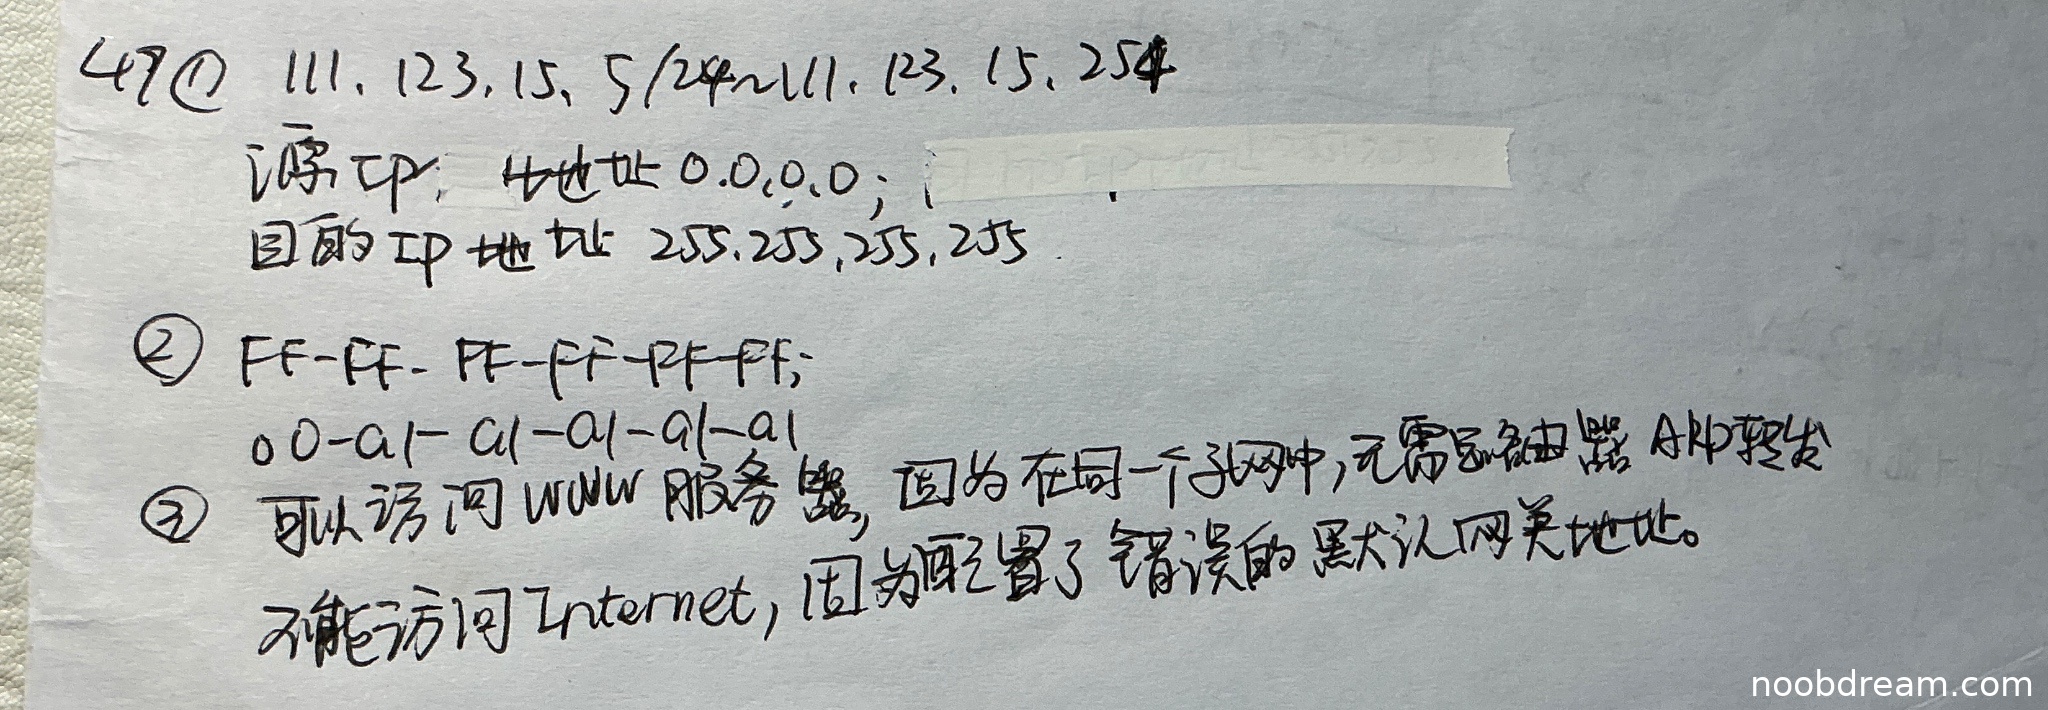 49① 111.123.15.5/24~111.123.15.254
源IP: 地址0.0.0.0;
目的IP地址 255.255.255.255
② FF-FF-FF-FF-FF-FF;
00-a1-a1-a1-a1-a1
③ 可以访问WWW服务器,因为在同一个子网中,无需路由器ARP转发
不能访问Internet,因为配置了错误的默认网关地址。
noobdream.com